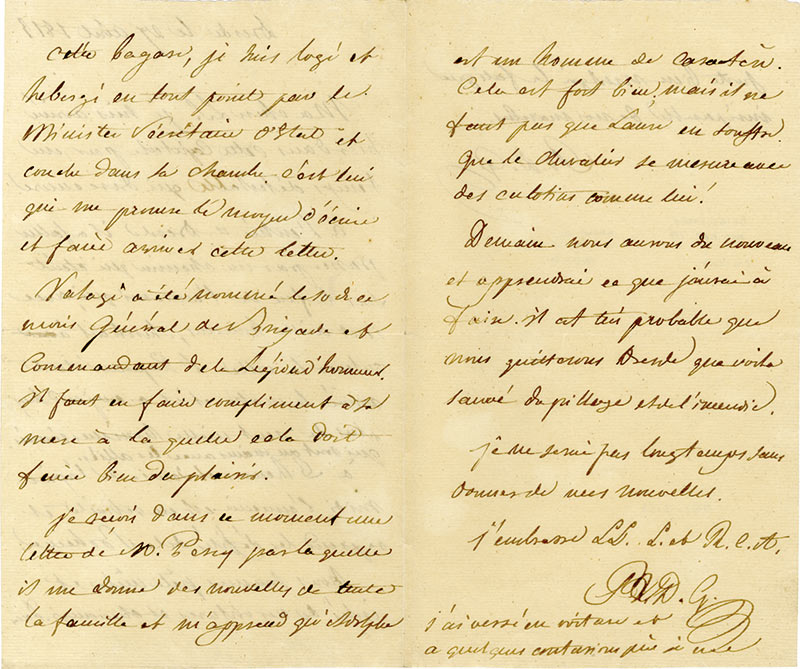 cette bagare, je suis logé et
hebergé en tout point par le
Ministre Sécrétaire d'Etat et
couche dans sa chambre c'est lui
qui me procure le moyen d'écrire
et faire arriver cette lettre.
Valazé a été nommé le 10 de ce
mois Général de Brigade et
Commandant de la Légion d'honneur.
il faut en faire compliment à sa
mere à la quelle cela doit
faire bien du plaisir.
je reçois dans ce moment une
lettre de M. Percy par la quelle
il me donne des nouvelles de toute
la famille et m'apprend qu'Adolphe
est un homme de caractère.
Cela est fort bien, mais il ne
faut pas que Laure en souffre.
que le chevalier se mesure avec
des culotins comme lui!
Demain nous aurons du nouveau
et apprendrai ce que j'aurai à
faire. il est très probable que
nous quitterons Dresde que voilà
sauvé du pillage et de l'incendie.
je ne serai pas longtemps sans
donner de mes nouvelles.
j'embrasse LL. L. et R. C. A.
D. G.
j'ai versé en voiture et
a quelques contusions près à une